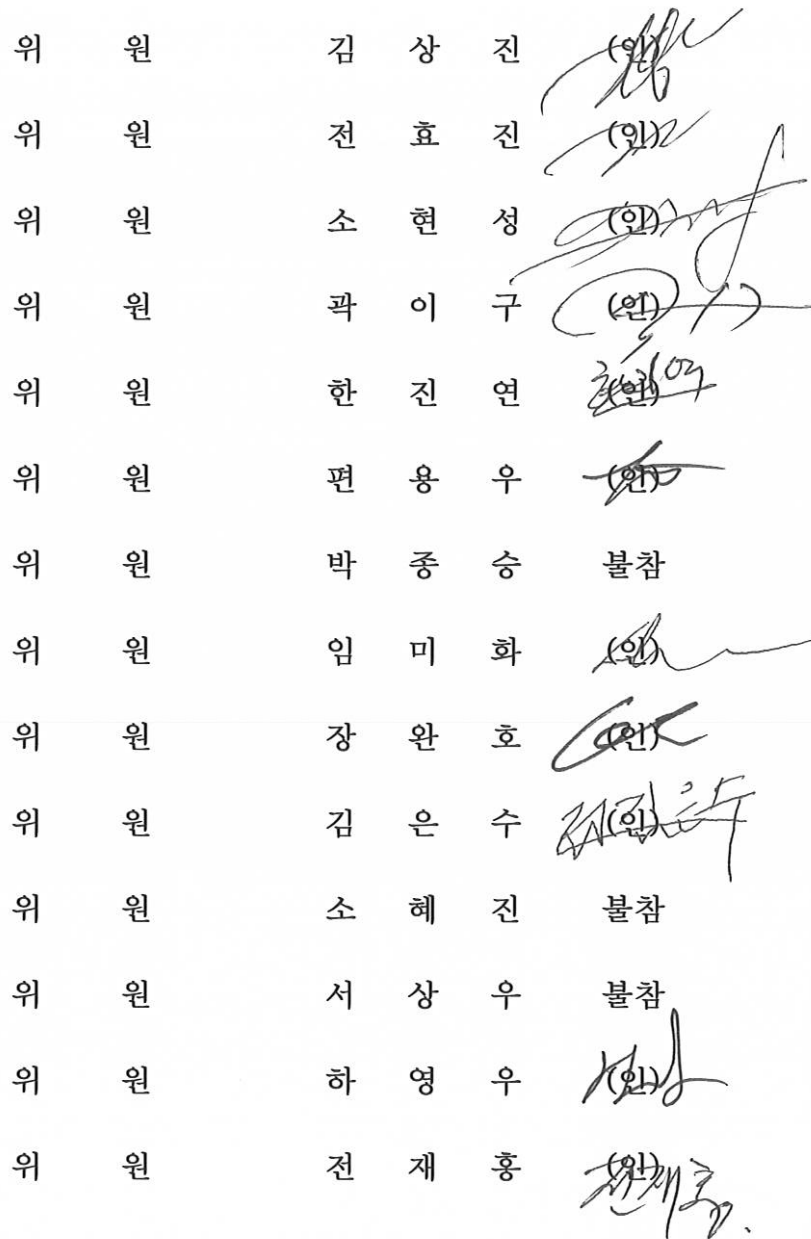 위 원 김 상 진 (인)
위 원 전 효 진 (인)
위 원 소 현 성 (인)
위 원 곽 이 구 (인)
위 원 한 진 연 (인)
위 원 편 용 우 (인)
위 원 박 종 승 불참
위 원 임 미 화 (인)
위 원 장 완 호 (인)
위 원 김 은 수 (인)
위 원 소 혜 진 불참
위 원 서 상 우 불참
위 원 하 영 우 (인)
위 원 전 재 홍 (인)